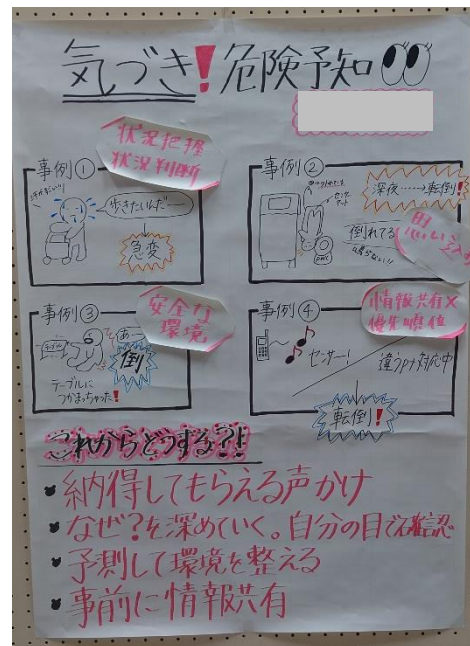 気づき！危険予知
事例①
状況把握
状況判断
歩きたいんだー
急変
事例②
深夜……転倒！
倒れてる
思い込み
事例③
安全力
環境
あー
倒
テーブル
テーブルに
つかまっちゃった！
事例④
情報共有×
優先順位
センサー！
違うPt対応中
転倒！
これからどうする？！
・納得してもらえる声かけ
・なぜ？を深めていく。自分の目で確認
・予測して環境を整える
・事前に情報共有